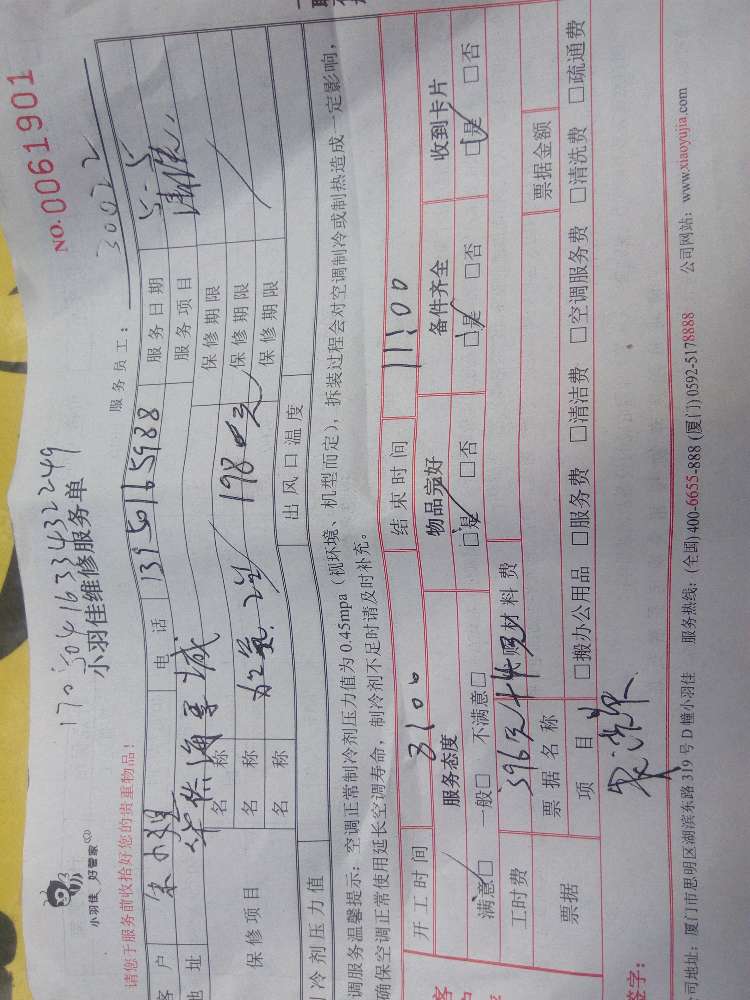 NO.0061901
170504163432249
小羽佳 好管家
小羽佳维修服务单
服务员工： 30022
请您于服务前收拾好您的贵重物品！
客户 小姐 电话 13950165988 服务日期 5.5
地址 华然海军城 服务项目 清洗
保修项目 名称 保修期限
名称 加氟 2台 198元 保修期限
名称 保修期限
冷剂压力值 出风口温度
调服务温馨提示：空调正常制冷剂压力值为0.45mpa（视环境、机型而定），拆装过程会对空调制冷或制热造成一定影响，
确保空调正常使用延长空调寿命，制冷剂不足时请及时补充。
开工时间 结束时间 11:00
服务态度 物品完好 备件齐全 收到卡片
满意□ 一般□ 不满意□ □是 □否 □是 □否 □是 □否
工时费 396元 材料费
票据 票据名称 票据金额
项目 □搬办公用品 □服务费 □清洁费 □空调服务费 □清洗费 □疏通费
签字：
司地址：厦门市思明区湖滨东路319号D幢小羽佳 服务热线：(全国)400-6655-888 (厦门)0592-5178888 公司网站：www.xiaoyujia.com